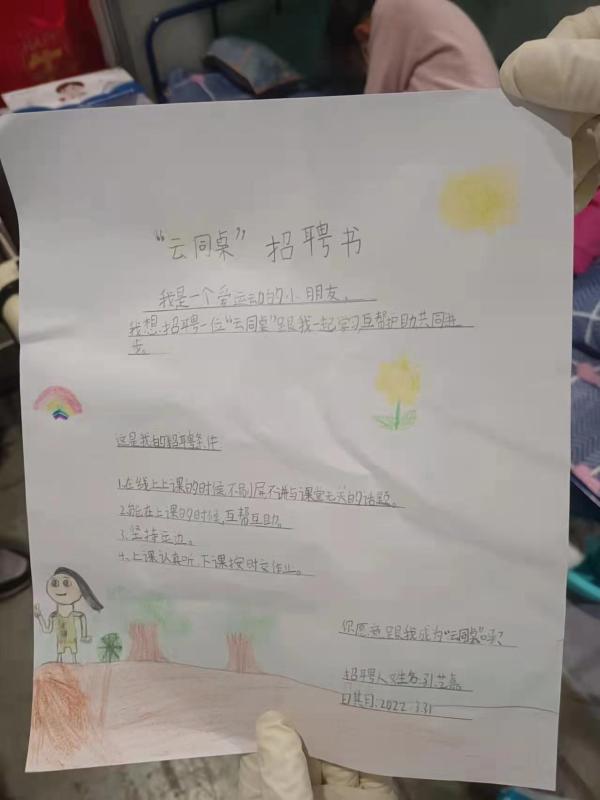 “云同桌”招聘书
我是一个爱运动的小朋友、
我想招聘一位“云同桌”跟我一起学习互帮护助共同进
步。
这是我的招聘条件
1.在线上上课的时候不刷屏不讲与课堂无关的话题。
2.能在上课的时候,互帮互助。
3.坚持运动。
4.上课认真听,下课按时交作业。
你愿意跟我成为“云同桌”吗?
招聘人姓名:
日其月:2022.3.31